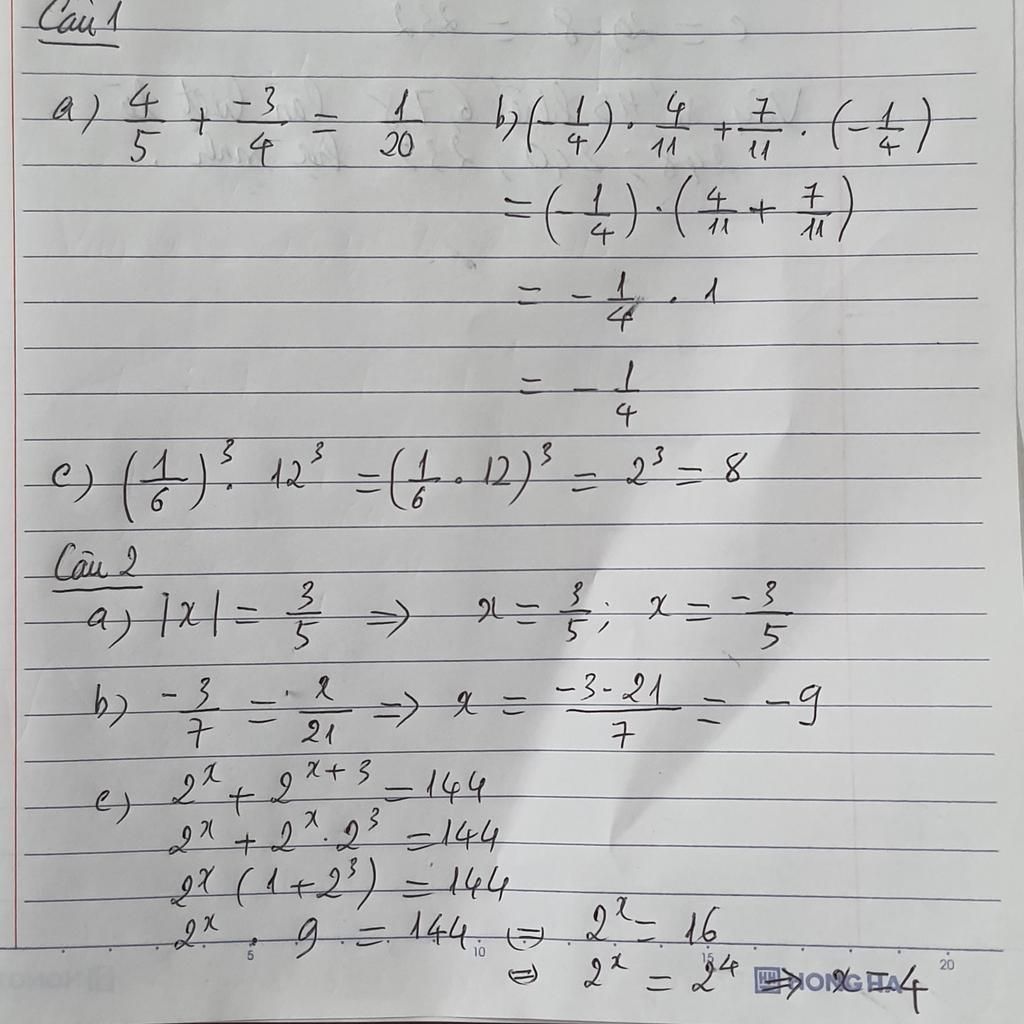 Câu 1
a) 4/5 + -3/4 = 1/20
b) (-1/4) . 4/11 + 7/11 . (-1/4)
= (-1/4) . (4/11 + 7/11)
= -1/4 . 1
= -1/4
c) (1/6)³ . 12³ = (1/6 . 12)³ = 2³ = 8
Câu 2
a) |x| = 3/5 => x = 3/5 ; x = -3/5
b) -3/7 = x/21 => x = -3.21/7 = -9
c) 2^x + 2^(x+3) = 144
2^x + 2^x . 2³ = 144
2^x (1 + 2³) = 144
2^x . 9 = 144 <=> 2^x = 16
<=> 2^x = 2⁴ => x = 4
5 10 15 20
HONG HA